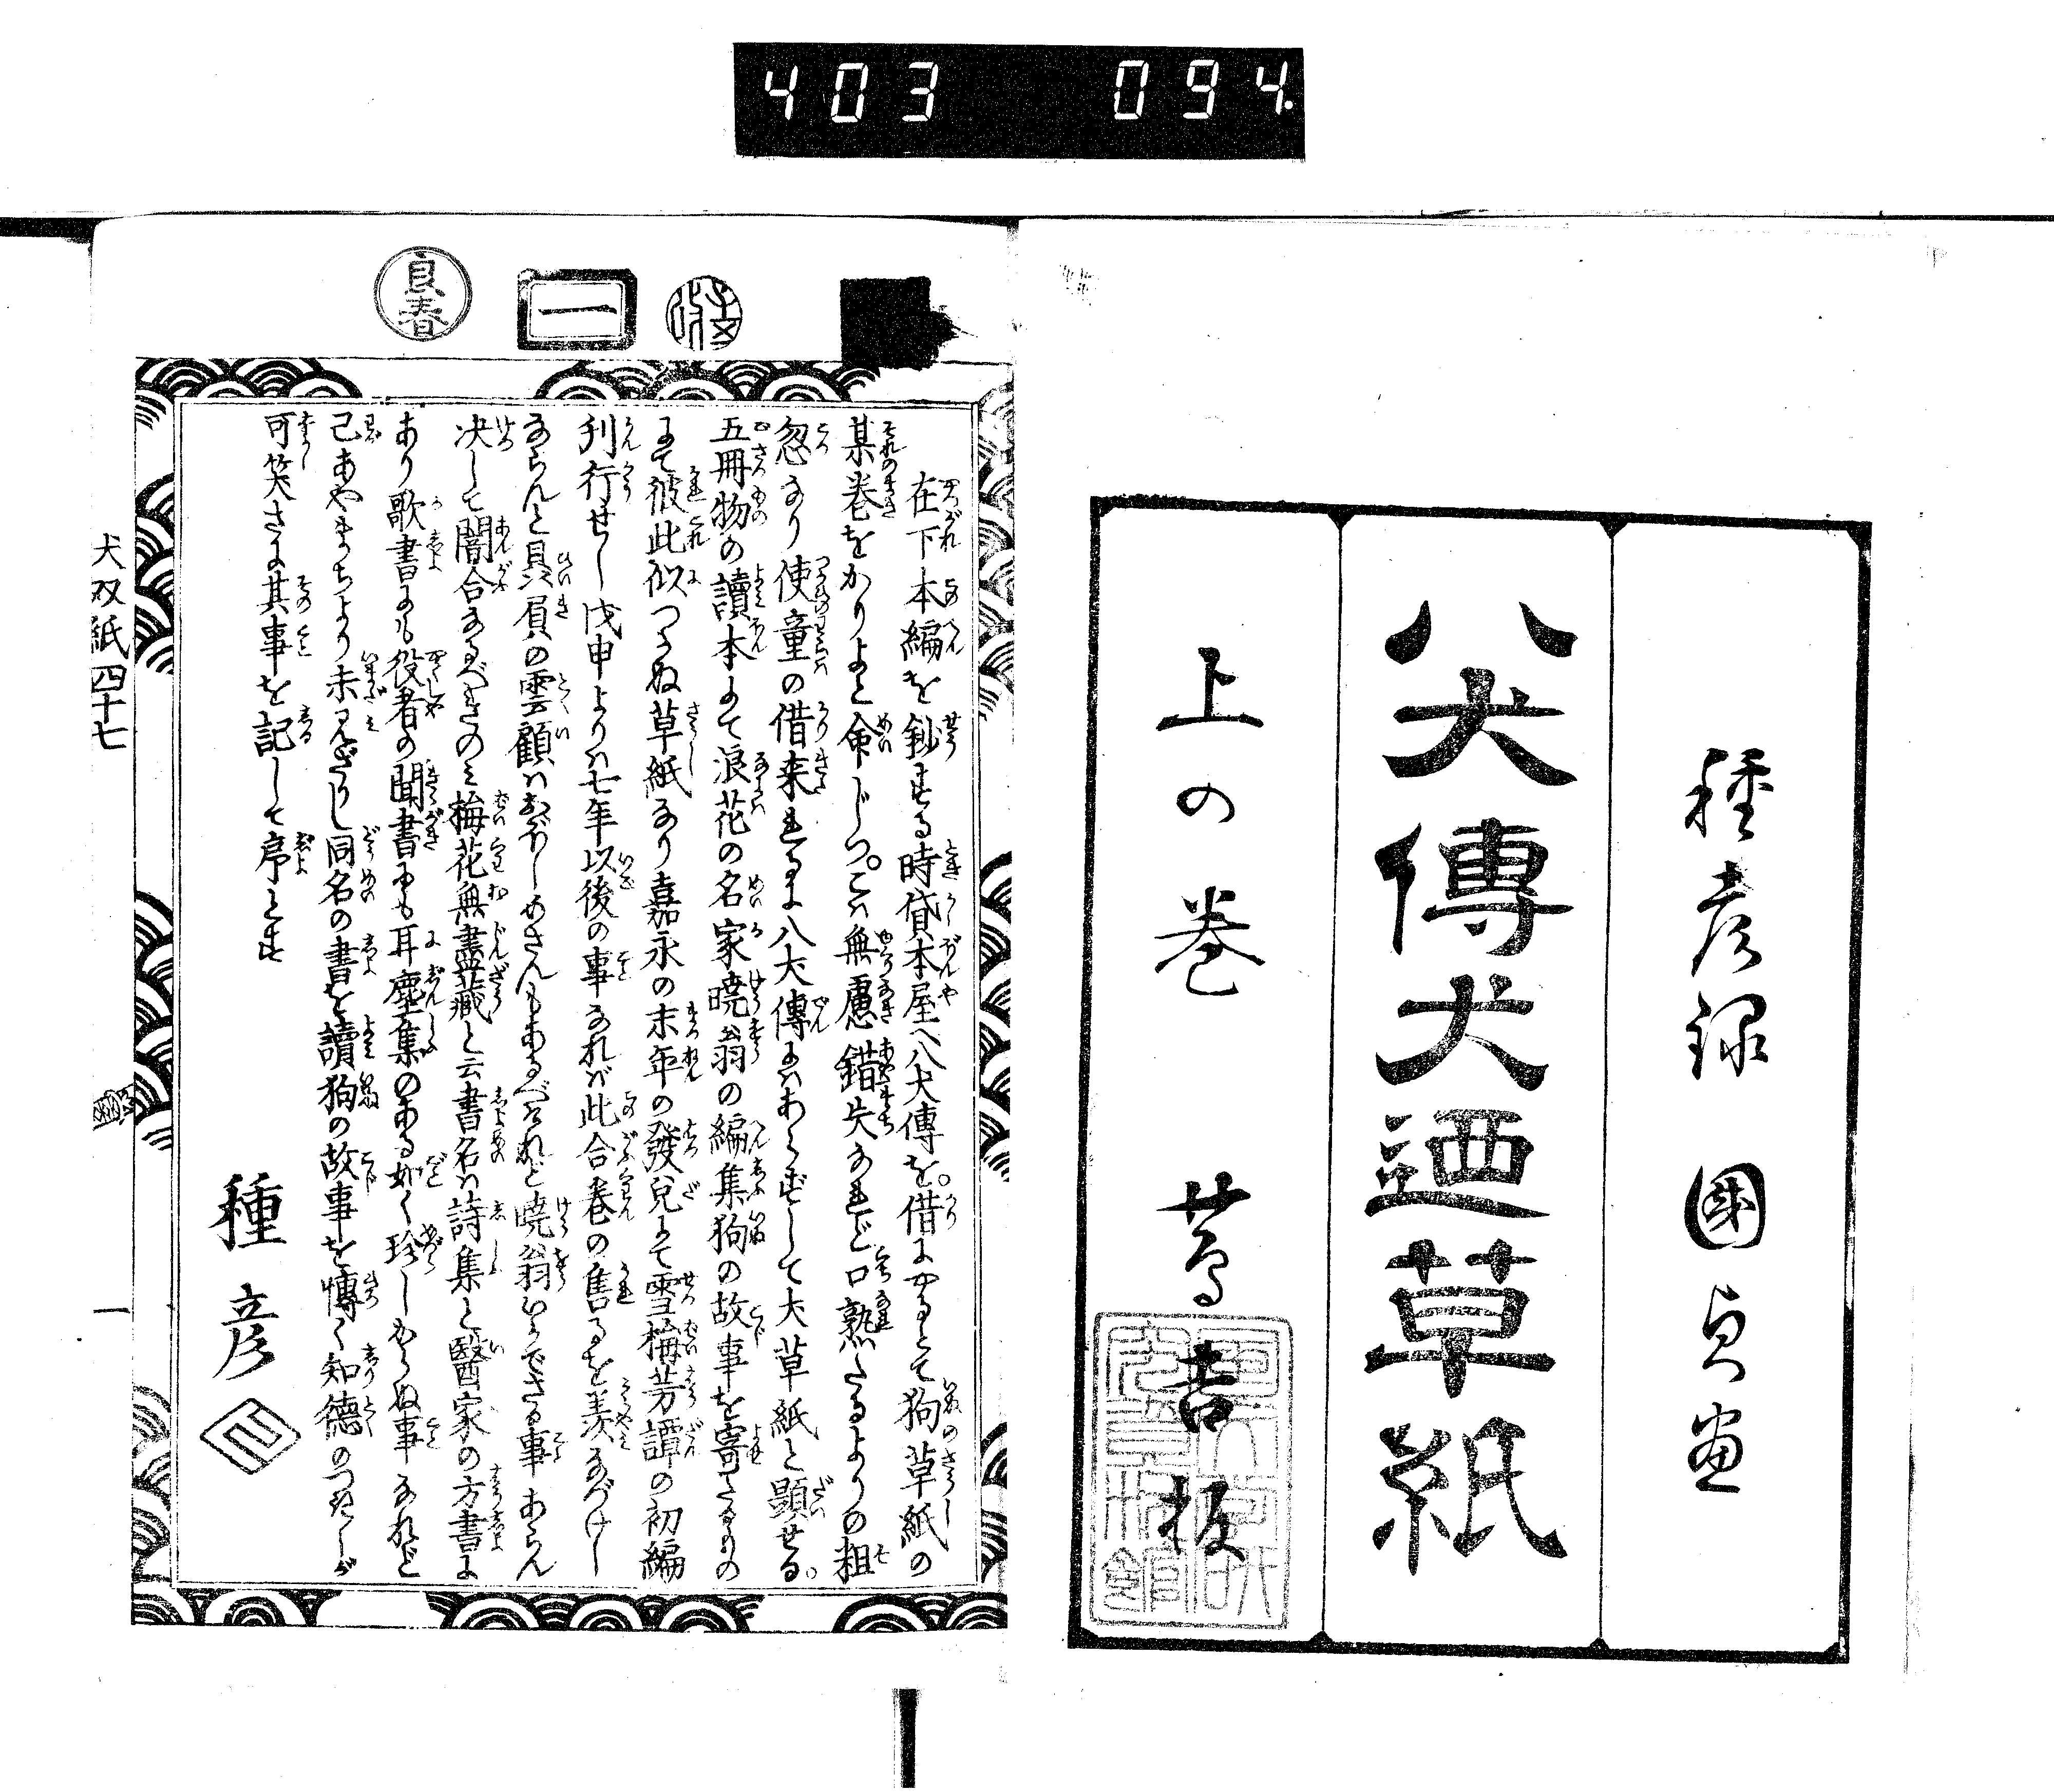 403 094.
種彦録 國貞画
八犬傳犬廼草紙
上の巻 蔦吉板
良春
一
在下本編を鈔する時貸本屋へ八犬傳を。借にやるとて狗草紙の
某巻をかりよと命じつ。こは無慮錯失なれど口熟たるよりの粗
忽なり使童の借来れるは八犬傳にはあらずして犬草紙と題せる。
五冊物の讀本にて浪花の名家暁翁の編集狗の故事を寄たるもの
にて彼此似つかぬ草紙なり嘉永の末年の發兌にて雪梅芳譚の初編
刊行せし戊申よりは七年以後の事なれば此合巻の售るを羨なづけし
ならんと贔屓の雲顧はおぼしめさんもあるべけれど暁翁いかでさる事あらん
决して闇合なるべきのみ梅花無盡蔵と云書名は詩集と醫家の方書に
あり歌書にも役者の聞書にも耳塵集のある如く珍しからぬ事なれど
己あやまちより未見ざりし同名の書を讀狗の故事を慱く知德のつたしが
可笑さに其事を記して序とす
種彦
犬双紙四十七
一